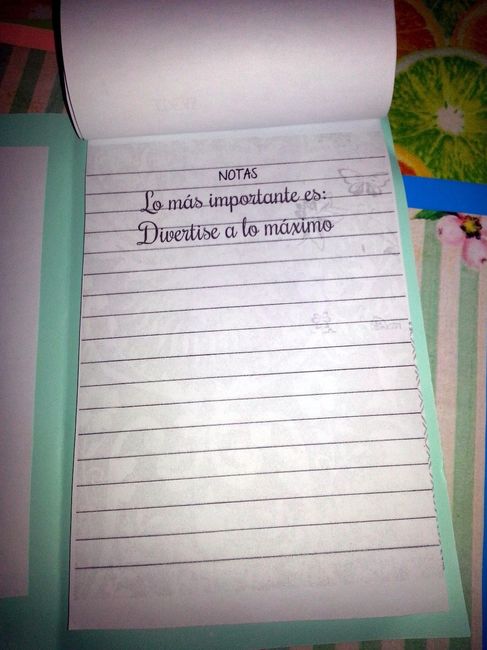 NOTAS
Lo más importante es:
Divertise a lo máximo